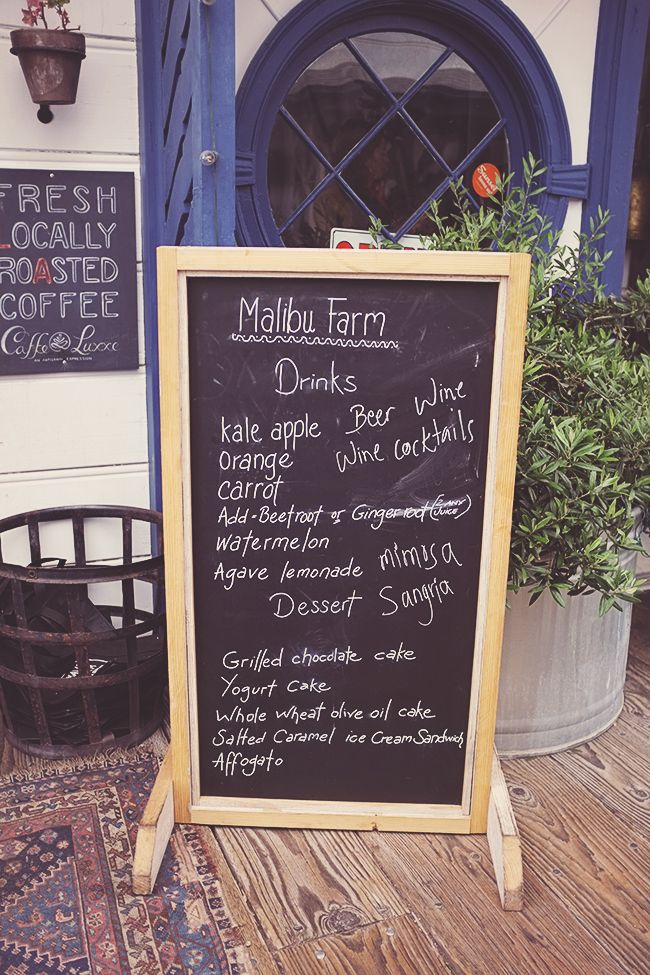 FRESH
LOCALLY
ROASTED
COFFEE
Caffe Luxxe
AN ARTISANAL EXPRESSION
Malibu Farm
Drinks
kale apple
orange
carrot
Add-Beetroot or Ginger root (2 ANY JUICE)
Watermelon
Agave lemonade
Beer Wine
Wine cocktails
mimosa
Sangria
Dessert
Grilled chocolate cake
Yogurt cake
Whole wheat olive oil cake
Salted Caramel ice Cream Sandwich
Affogato
Sunset